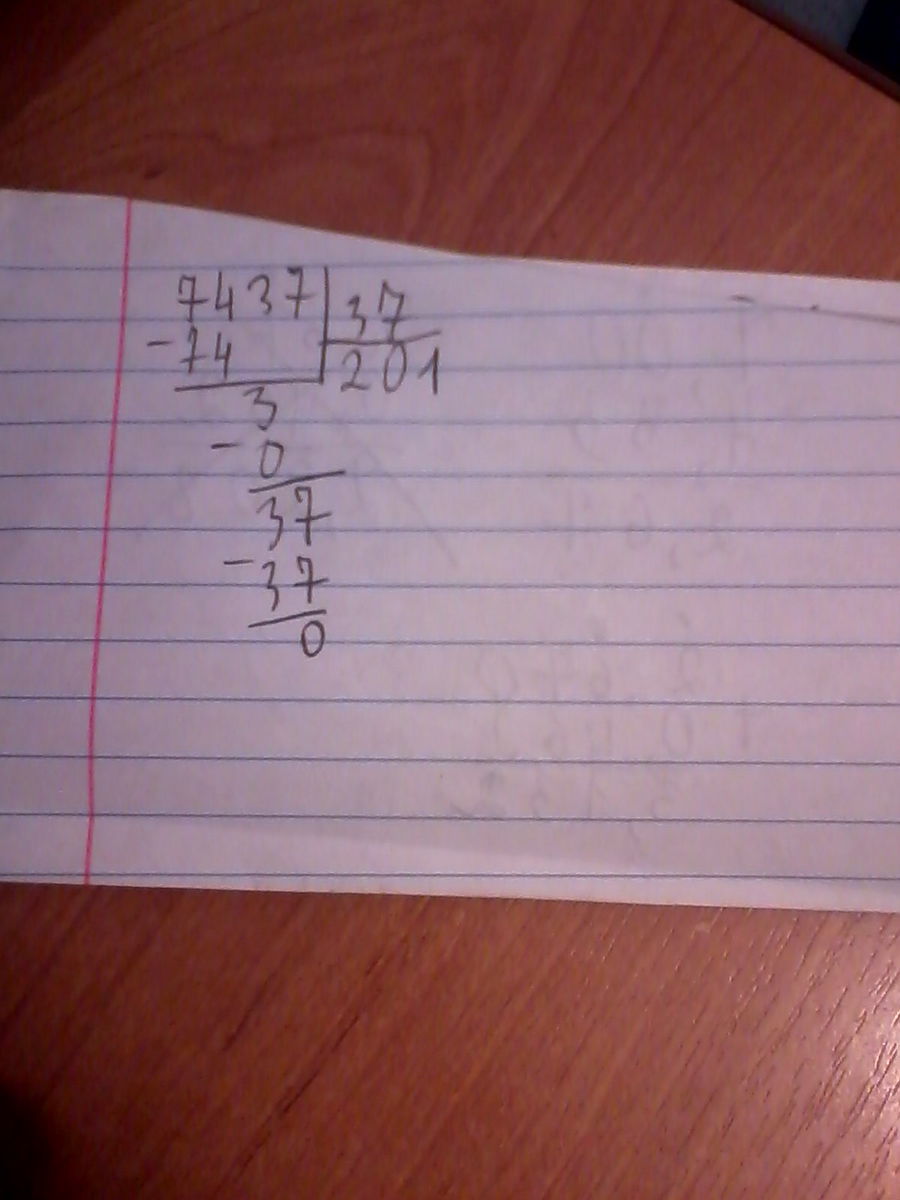 7437 37
-74 201
3
-0
37
-37
0